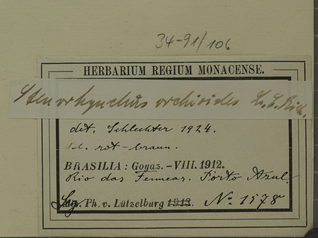 34-91/106
HERBARIUM REGIUM MONACENSE.
Stenorhynchus orchioides L. C. Rich.
det. Schlechter 1924.
bl. rot-braun.
BRASILIA: Goyaz.-VIII. 1912.
Rio das Femeas. Porto Azul.
Leg. Ph. v. Lützelburg 1913. No. 1578